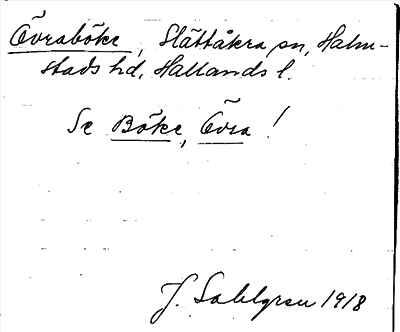 Övraböke, Slättåkra sn, Halm-
stads hd, Hallands l.
Se Böke, Övra!
J. Sahlgren 1918